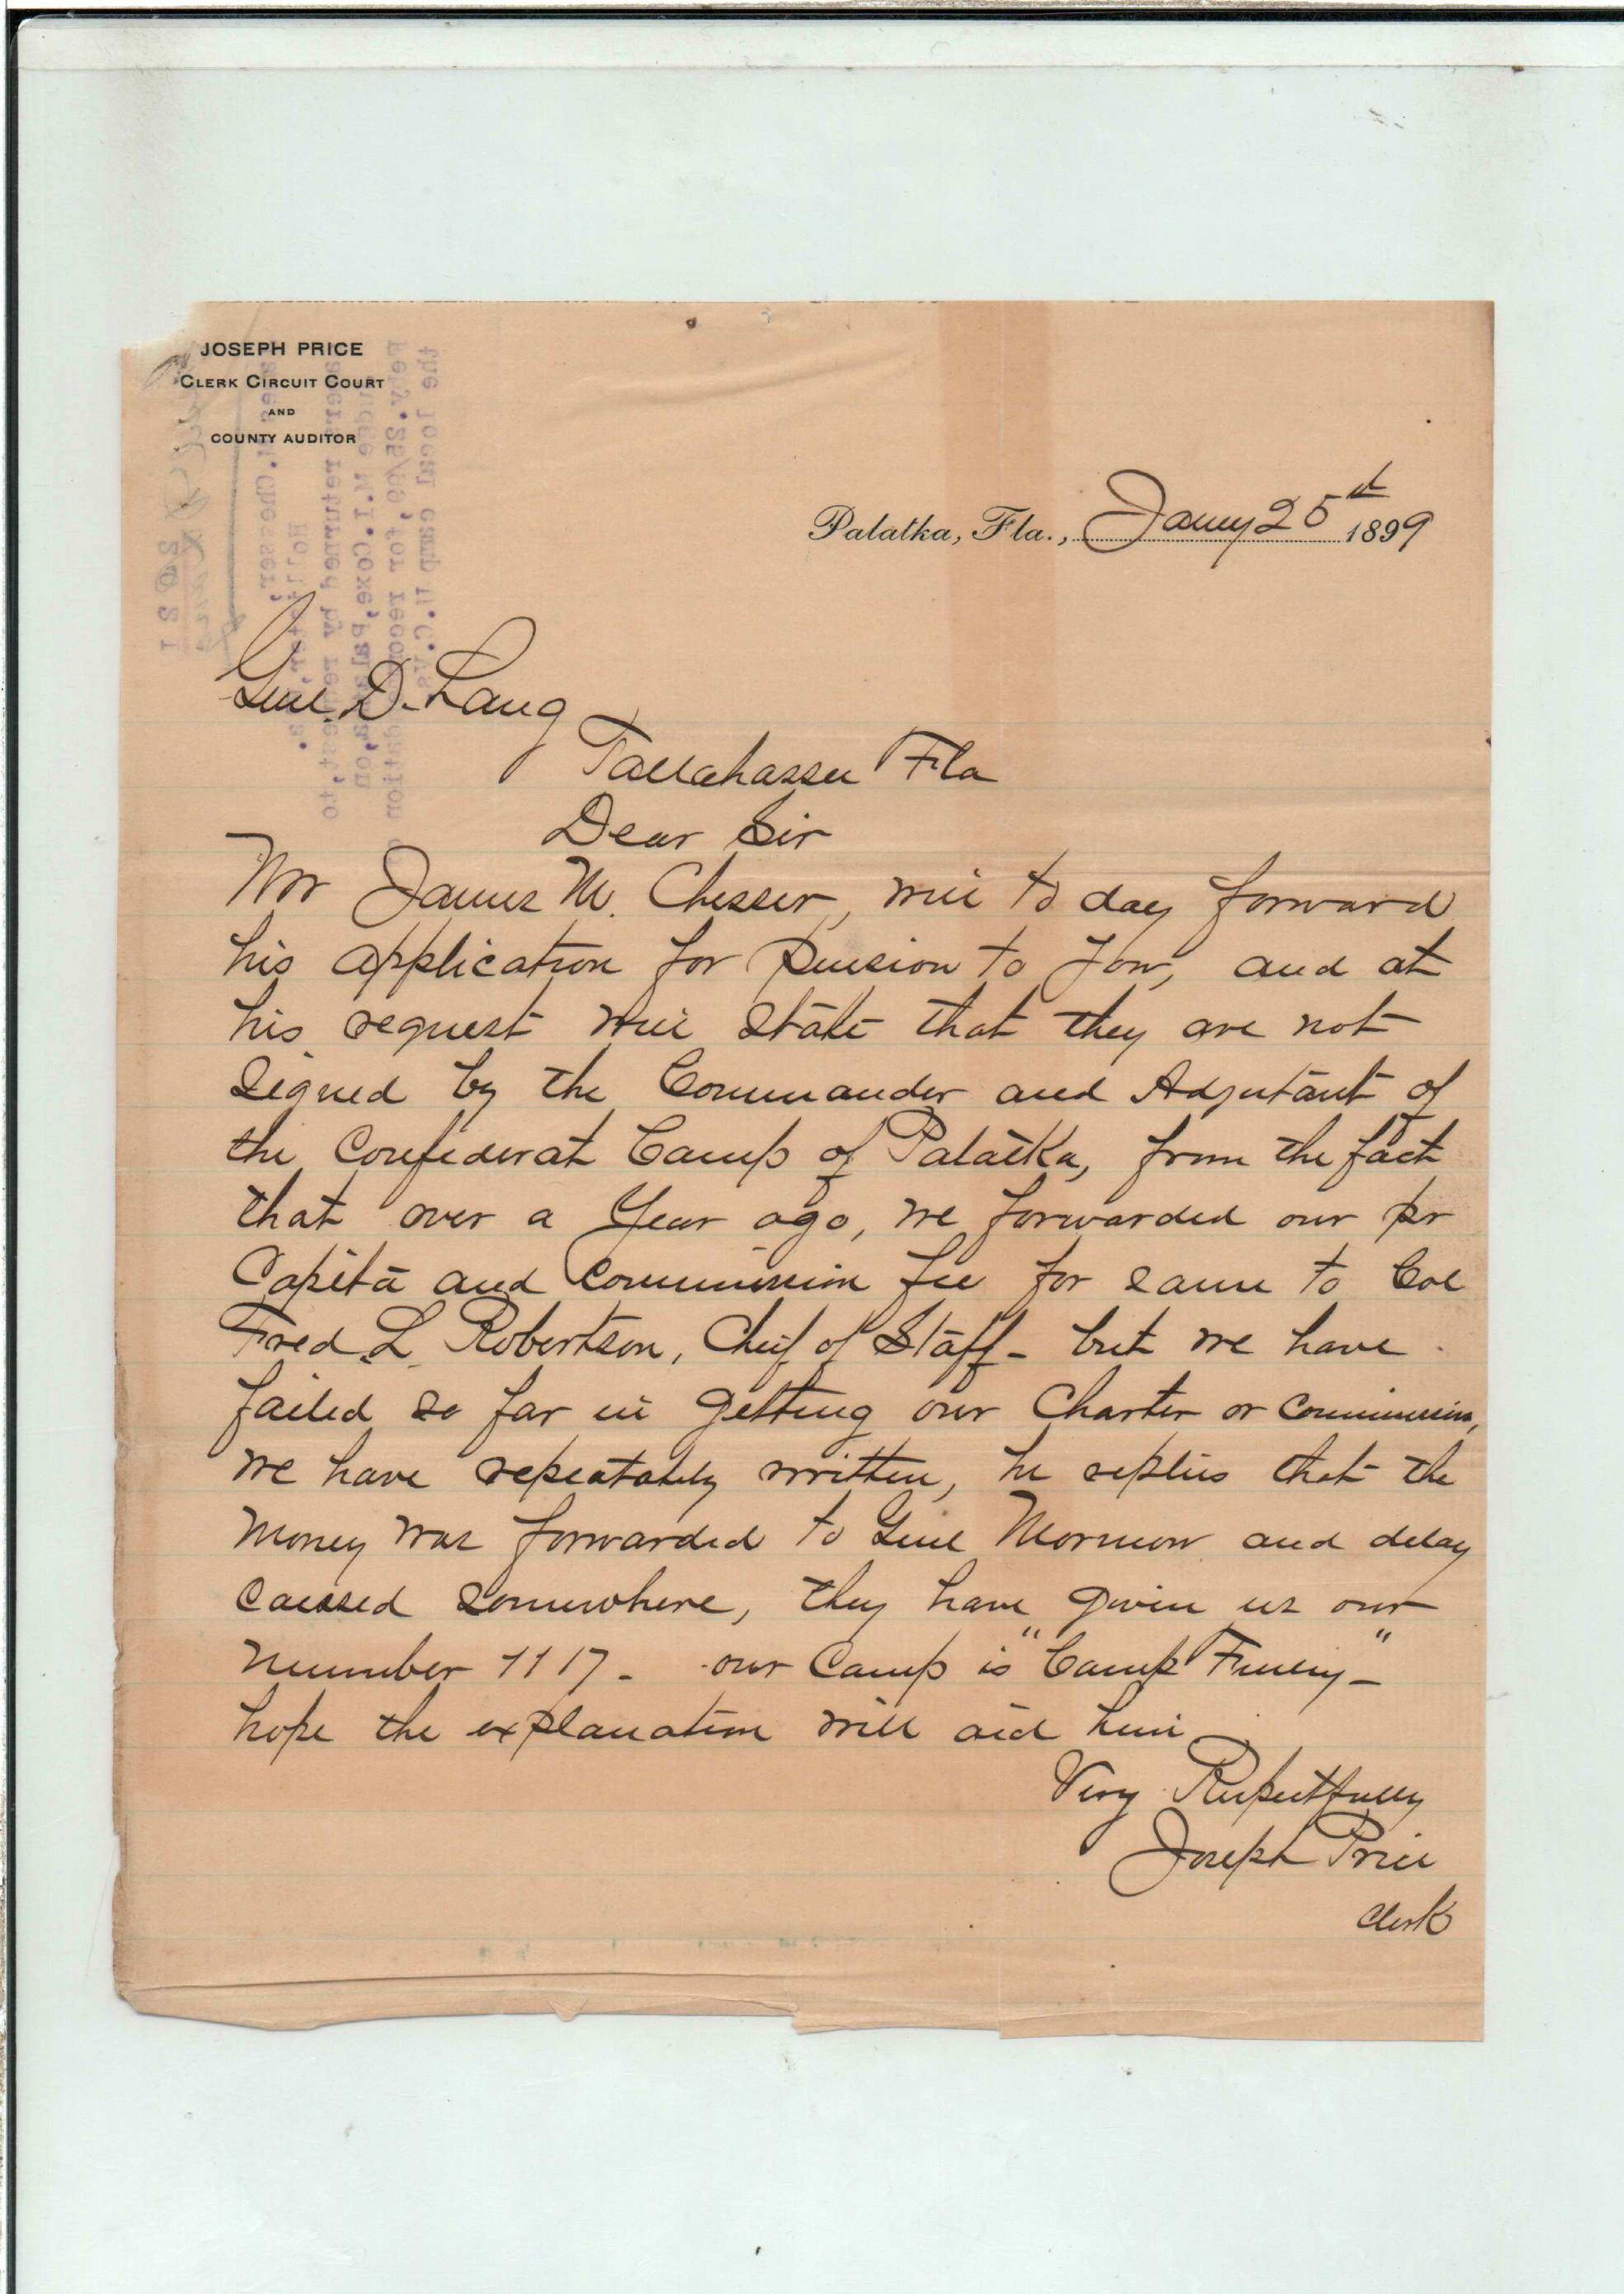 JOSEPH PRICE
CLERK CIRCUIT COURT
AND
COUNTY AUDITOR
Palatka, Fla., Jany 25th 1899
Genl. D. Lang
Tallahassee Fla
Dear Sir
Mr James M. Chesser, will to day forward
his application for Pension to you, and at
his request will State that they are not
Signed by the Commander and Adjutant of
the Confederat Camp of Palatka, from the fact
that over a Year ago, we forwarded our pr
Capita and Commission fee for same to Col
Fred. L. Robertson, Chief of Staff - but we have
failed so far in getting our Charter or Commission,
we have repeatatily written, he replies that the
money was forwarded to Genl and delay
caused somewhere, they have given us our
number 1117 - our Camp is "Camp Finley" -
hope the explanation will aid him
Very Respectfully
Joseph Price
Clerk